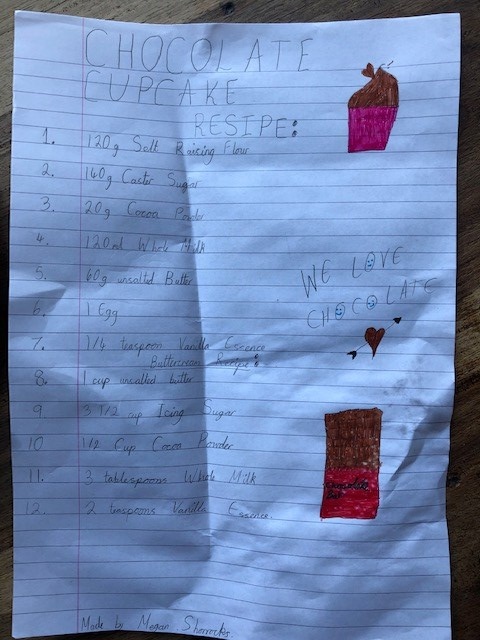 CHOCOLATE
CUPCAKE
RESIPE:
1. 120g Salt Raising Flour
2. 140g Caster Sugar
3. 20g Cocoa Powder
4. 120ml Whole Milk
5. 60g unsalted Butter
6. 1 Egg
7. 1/4 teaspoon Vanilla Essence
Buttercream Recipe:
8. 1 cup unsalted butter
9 3 1/2 cup Icing Sugar
10 1/2 Cup Cocoa Powder
11. 3 tablespoons Whole Milk
12. 2 teaspoons Vanilla Essence.
WE LOVE
CHOCOLATE
Made by Megan